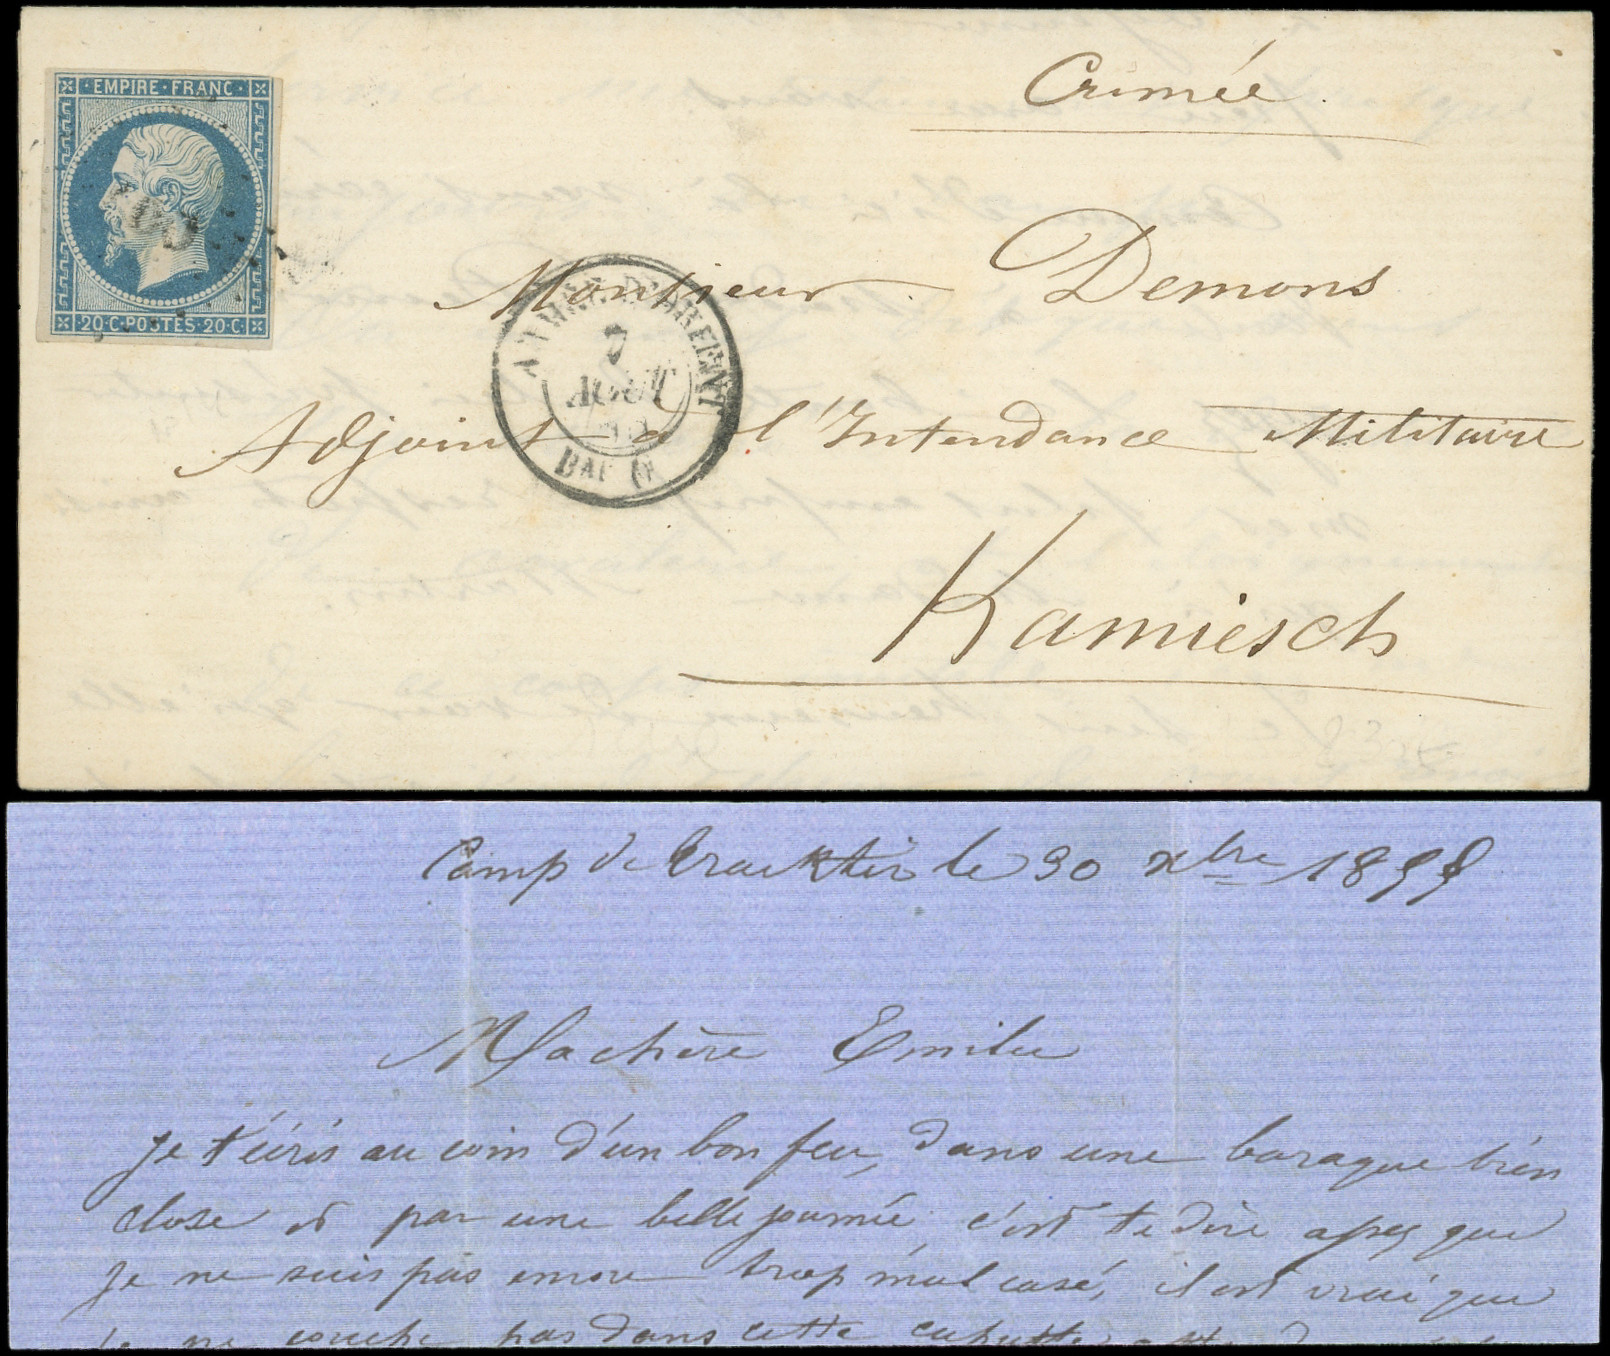 EMPIRE · FRANC ·
20 · C · POSTES · 20 · C ·
Crimée
Monsieur Demons
ARMÉE D'ORIENT
7
AOUT
Adjoint à l'Intendance Militaire
BAU
Kamiesch
Camp de Tracktir le 30 xbre 1855
Ma chère Emilie
Je t'écris au coin d'un bon feu, dans une baraque bien
close et par une belle journée, c'est te dire assez que
je ne suis pas encore trop mal casé, il est vrai que
je ne couche pas dans cette cahutte